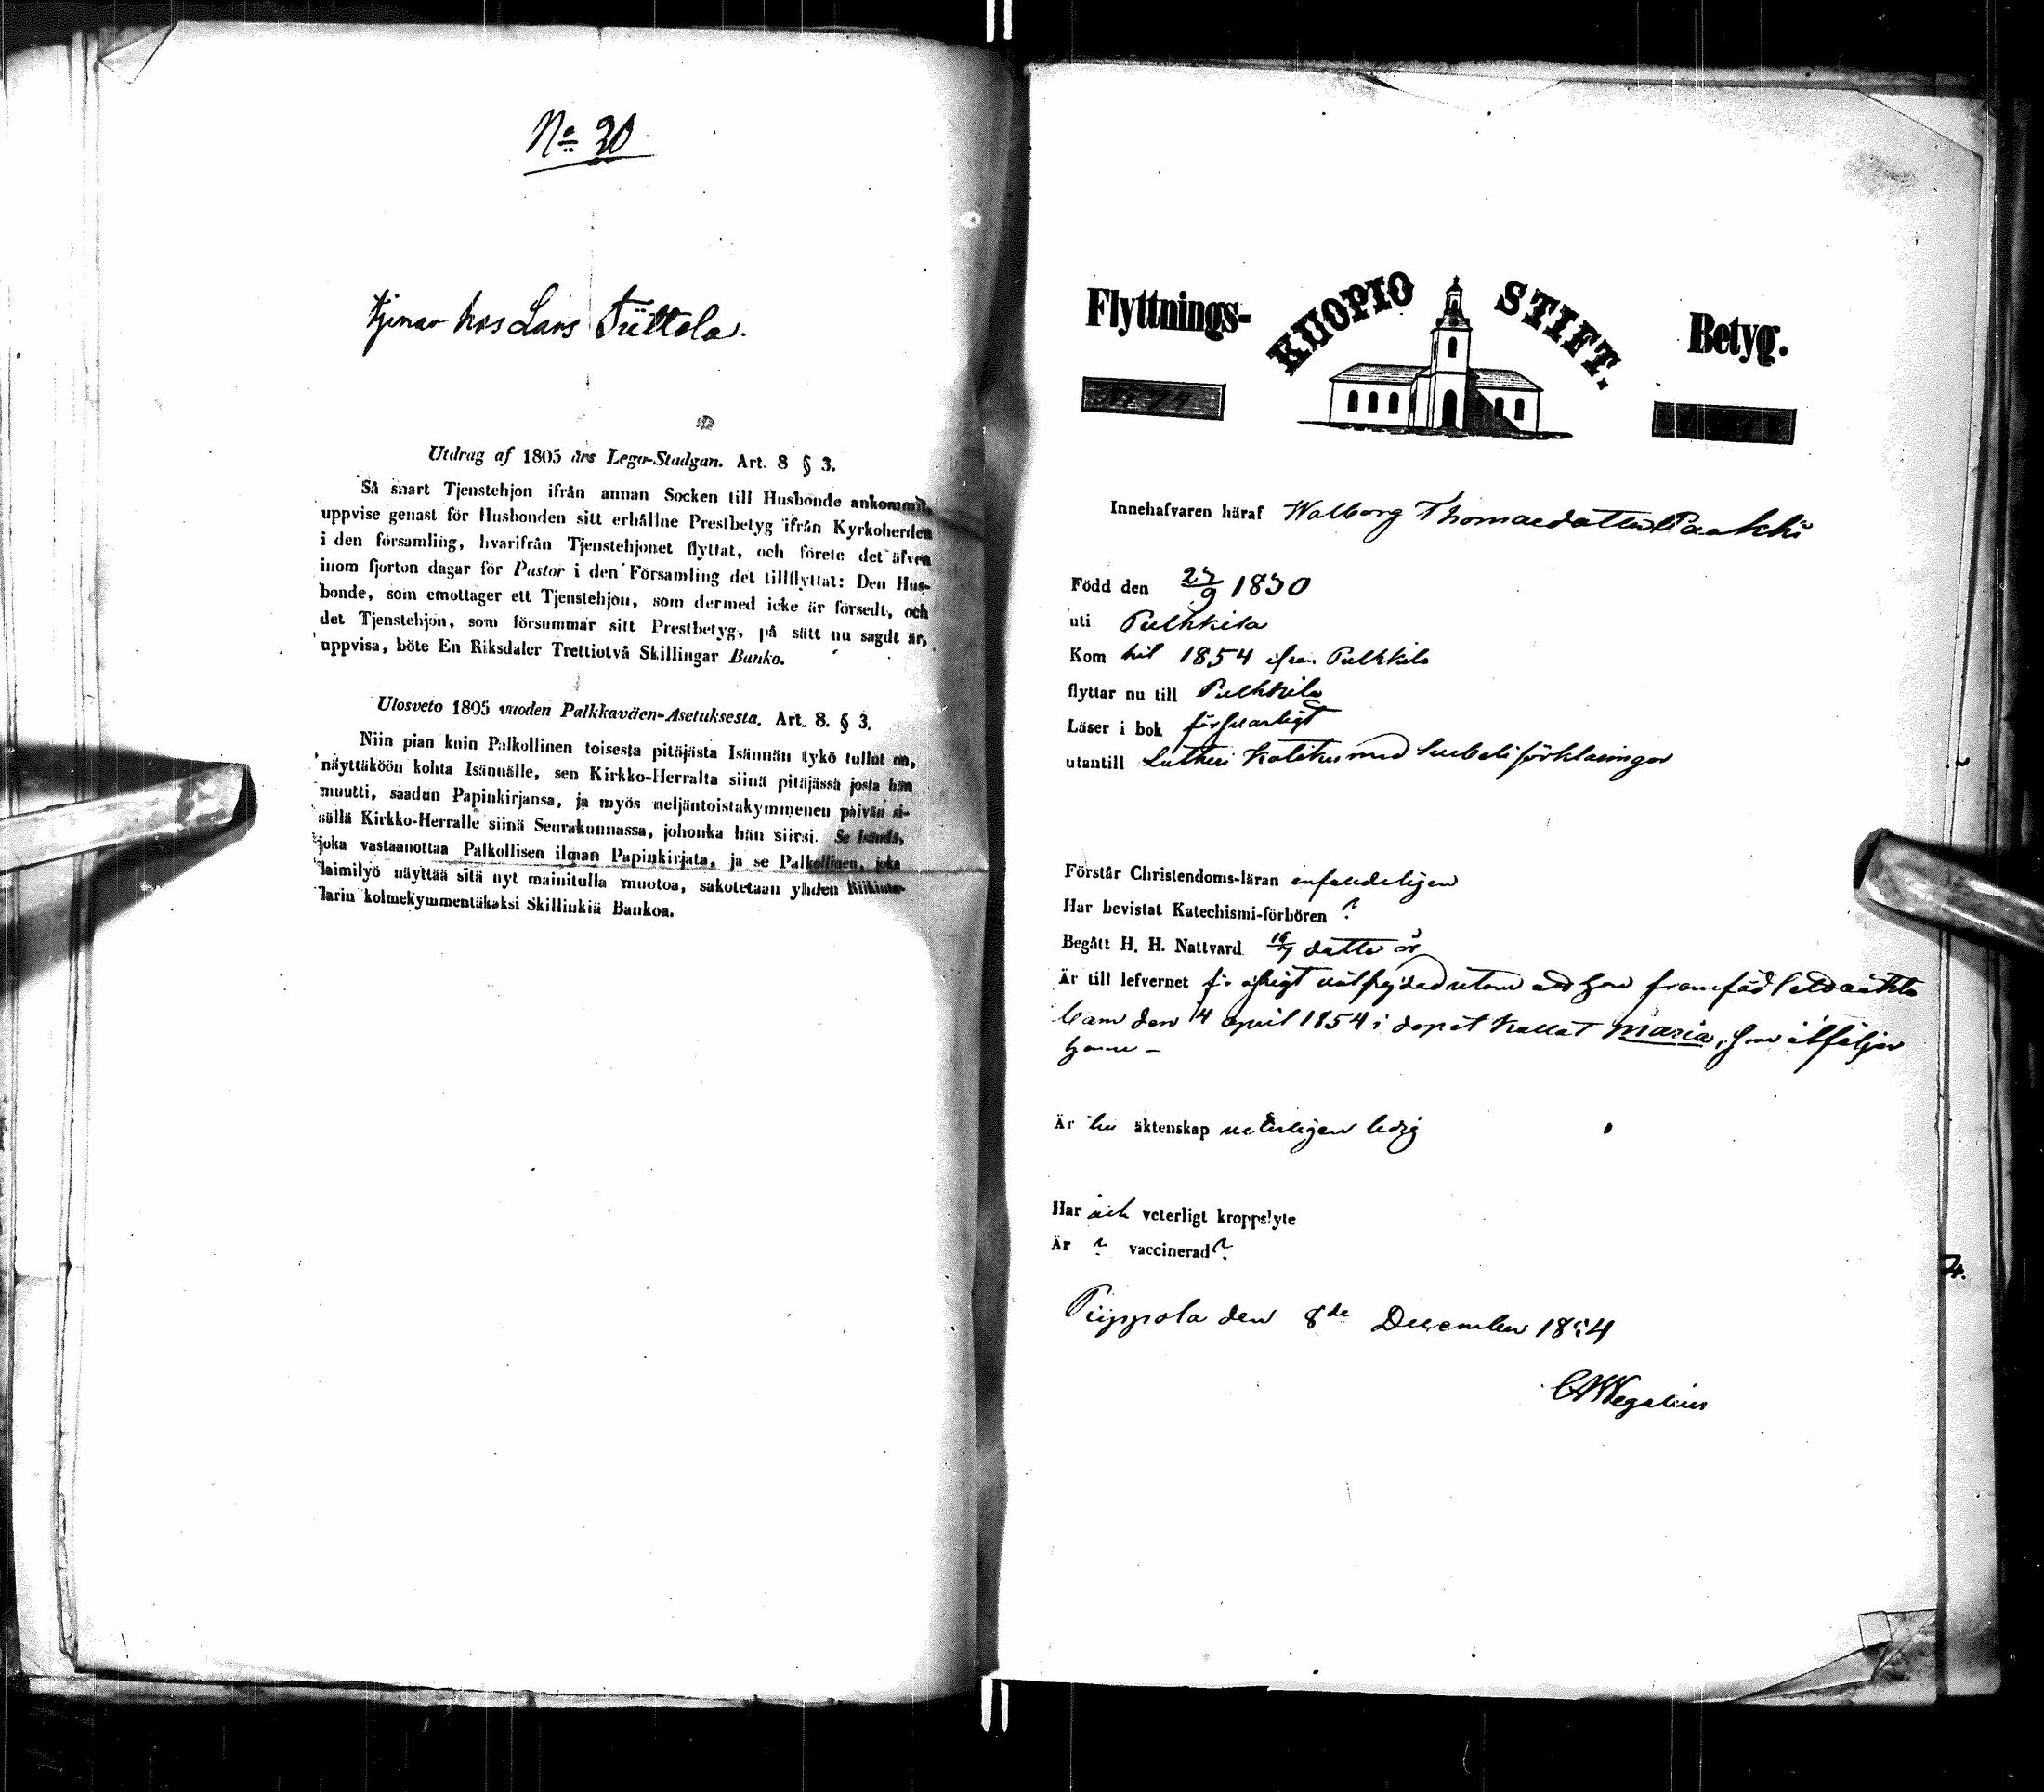 No 20
tjenar hos Lars Tuttola.
Utdrag af 1805 års Lego-Stadgan. Art. 8 § 3.
Så snart Tjenstehjon ifrån annan Socken till Husbonde ankommit,
uppvise genast för Husbonden sitt erhållne Prestbetyg ifrån Kyrkoherden
i den församling, hvarifrån Tjenstehjonet flyttat, och förete det äfven
inom fjorton dagar för Pastor i den Församling det tillflyttat: Den Hus-
bonde, som emottager ett Tjenstehjon, som dermed icke är försedt, och
det Tjenstehjon, som försummar sitt Prestbetyg, på sätt nu sagdt är,
uppvisa, böte En Riksdaler Trettiotvå Skillingar Banko.
Ulosveto 1805 vuoden Palkkaväen-Asetuksesta. Art. 8. § 3.
Niin pian kuin Palkollinen toisesta pitäjästa Isännän tykö tullut on,
näyttäköön kohta Isännälle, sen Kirkko-Herralta siinä pitäjässä josta hän
muutti, saadun Papinkirjansa, ja myös neljäntoistakymmenen päivän si-
sällä Kirkko-Herralle siinä Seurakunnassa, johonka hän siirsi. Se Isäudä,
joka vastaanottaa Palkollisen ilman Papinkirjata, ja se Palkollinen, joka
laimilyö näyttää sitä nyt mainitulla muotoa, sakotetaan yhden Riikinta-
larin kolmekymmentäkaksi Skillinkiä Bankoa.
Flyttnings- KUOPIO STIFT. Betyg.
No 74
Innehafvaren häraf Walborg Thomaedotter Paakki
Född den 27/9 1830
uti Pulkkila
Kom hit 1854 ifrån Pulkkila
flyttar nu till Pulkkila
Läser i bok försvarligt
utantill Lutheri Katekes med Svebeli förklaringar
Förstår Christendoms-läran enfaldeligen
Har bevistat Katechismi-förhören ?
Begått H. H. Nattvard 16/7 detta år
Är till lefvernet för öfrigt välfrejdad utom att hon framfödt oäkta
barn den 14 april 1854 i dopet kallat Maria, som åtföljer
henne -
Är till äktenskap veterligen ledig
Har ick veterligt kroppslyte
Är ? vaccinerad ?
Piippola den 8de December 1854
C A Wegelius
4.